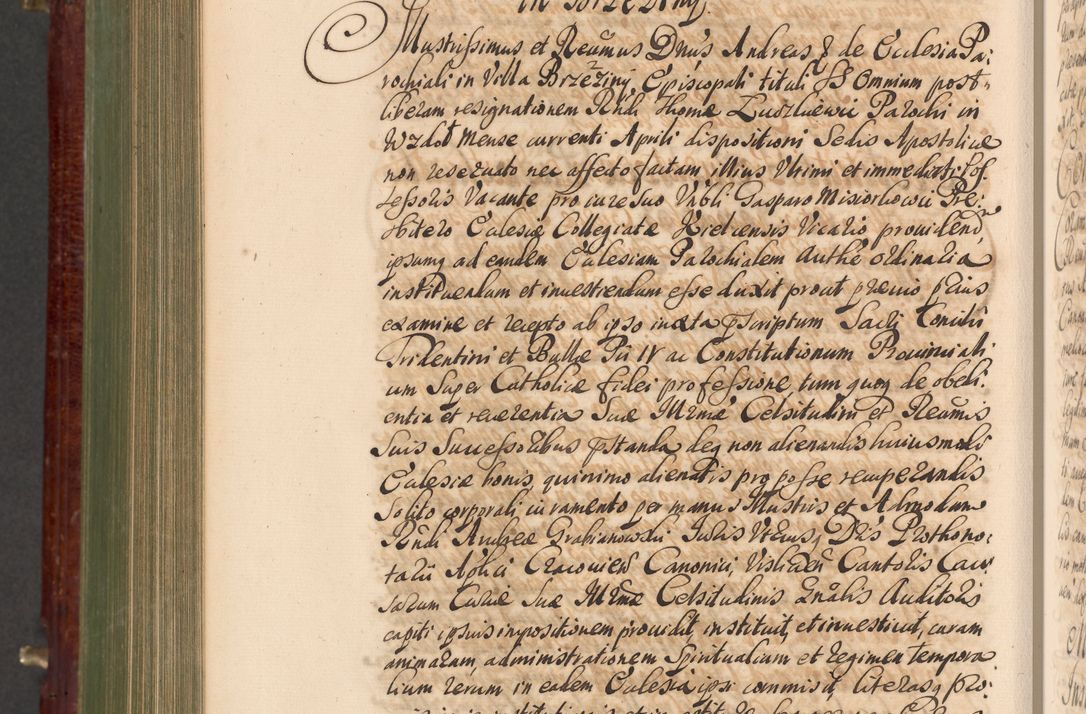 in Brzeziny.
Illustrissimus et Reũmus Dnũs Andreas & de Ecclesia Pa:
rochiali in Villa Brzeziny Episcopali tituli SS Omnium post
liberam resignationem Rñdi Thomæ Parochi in
Wzdoł Mense currenti Aprili dispositioni Sedis Apostolicæ
non reseruato nec affecto factam illius Vltimi et immediati Pos:
sessoris Vacante pro iure suo Vñbli Gasparo Misiorkowic Præ:
sbitero Ecclesiæ Collegiatæ Kielcensis Vicario prouidend,
ipsumq ad eandem Ecclesiam Parochialem Authẽ ordinaria
instituendum et inuestiendum esse duxit prout præuio prius
examine et recepto ab ipso iuxta pscriptum Sacri Concilii
Tridentini et Bullæ Pii IV ac Constitutionum Prouinciali:
um Super Catholicæ fidei professione tum quoq de obedi:
entia et reuerentia Suæ Illr̃mæ Celsitudini et Reũmis
Suis Successoribus pstanda deq non alienandis huiusmodi
Ecclesiæ bonis, quinimo alienatis pro posse recuperandis
Solito corporali iuramento per manus Illustris et Admodum
Rñdi Andreæ Grabianowski Iuris Vtriusq Dris Prothono:
tarii Aplici Cracouien Canonici, Vislicien Cantoris Cau:
sarum Curiæ Suæ Illr̃mæ Celsitudinis Gñalis Auditoris
capiti ipsius impositionem prouidit, instituit, et inuestiuit, curam
animarum, administrationem Spiritualium et regimen tempora
lium rerum in eadem Ecclesia ipsi commisit, literasq pro: